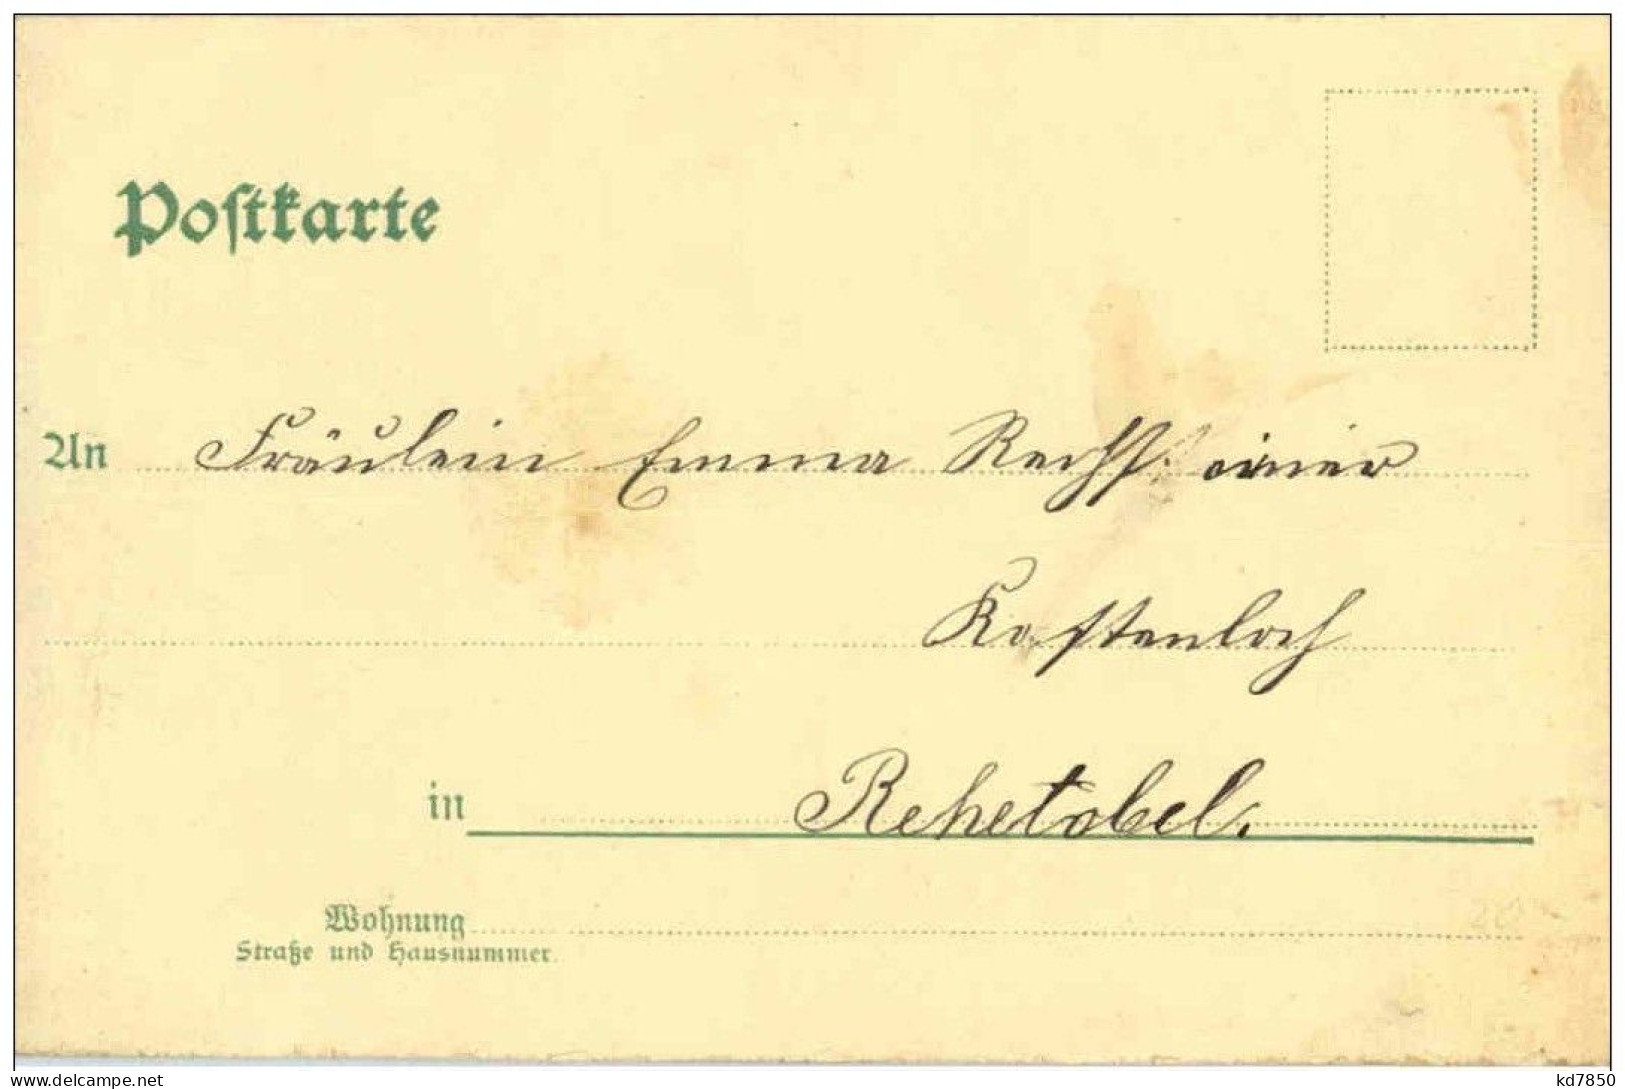 Postkarte
An Fräulein Emma Rechsteiner
Kastenloch
in Rehetobel.
Wohnung
Straße und Hausnummer.
www.delcampe.net
kd7850